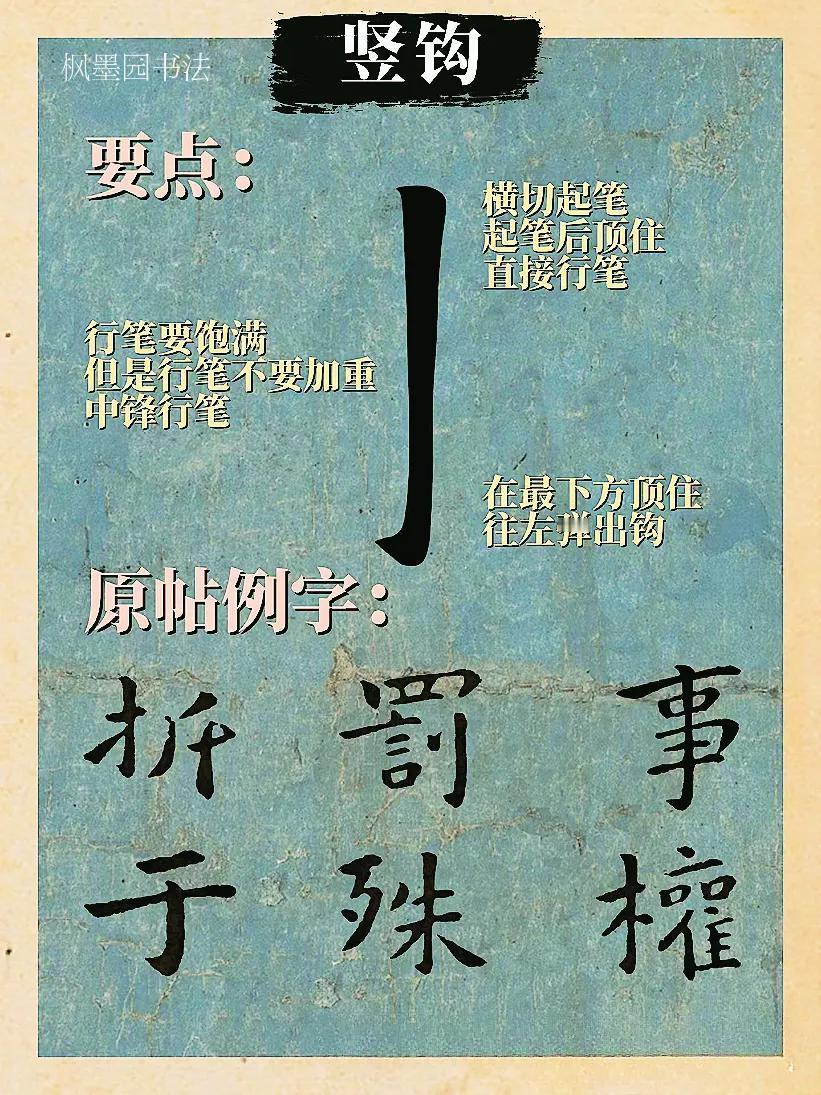 竖钩
枫墨园书法
要点：
横切起笔
起笔后顶住
直接行笔
行笔要饱满
但是行笔不要加重
中锋行笔
在最下方顶住
往左弹出钩
原帖例字：
折 罰 事
于 殊 權